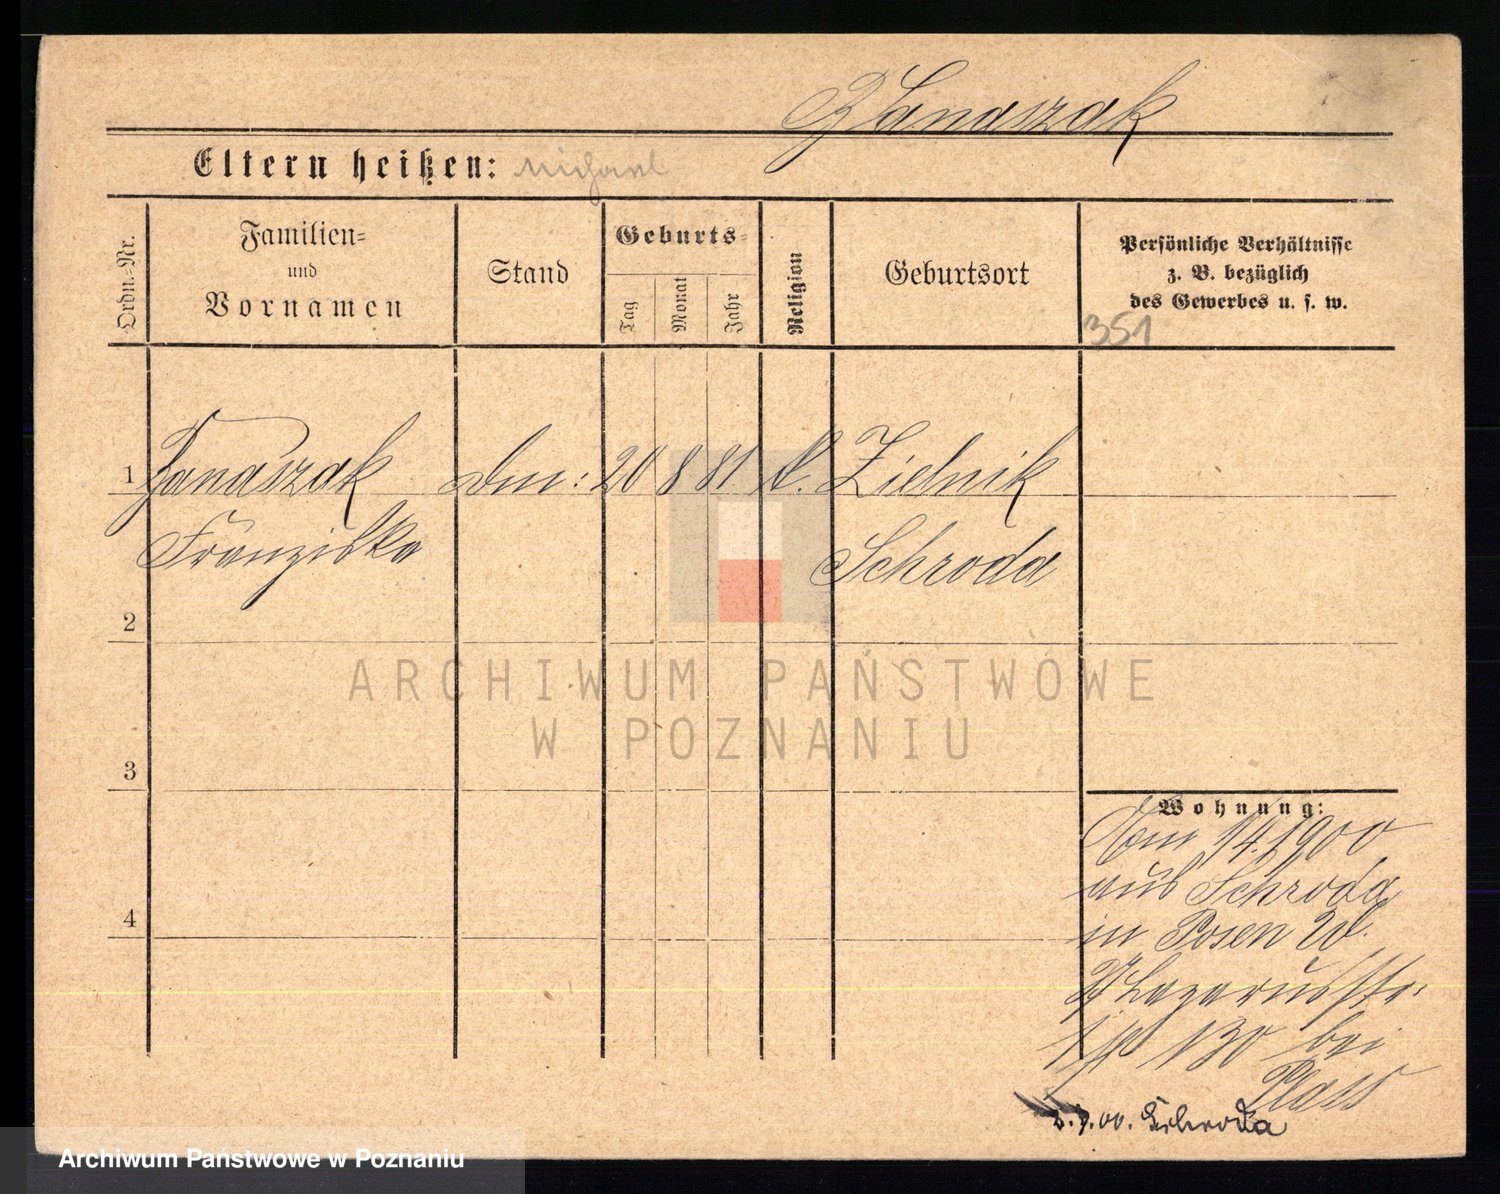 Janaszak
Eltern heißen: Michael
Ordn.-Nr.
Familien-
und
Vornamen
Stand
Geburts-
Tag
Monat
Jahr
Religion
Geburtsort
Persönliche Verhältnisse
z. B. bezüglich
des Gewerbes u. s. w.
351
1 Janaszak
Franziska
20 8 81
Zielnik
Schroda
2
3
4
Wohnung:
1/4.1900
aus Schroda
in Posen W.
Lazarusstr.
130 bei
00. Schroda
ARCHIWUM PAŃSTWOWE
W POZNANIU
Archiwum Państwowe w Poznaniu